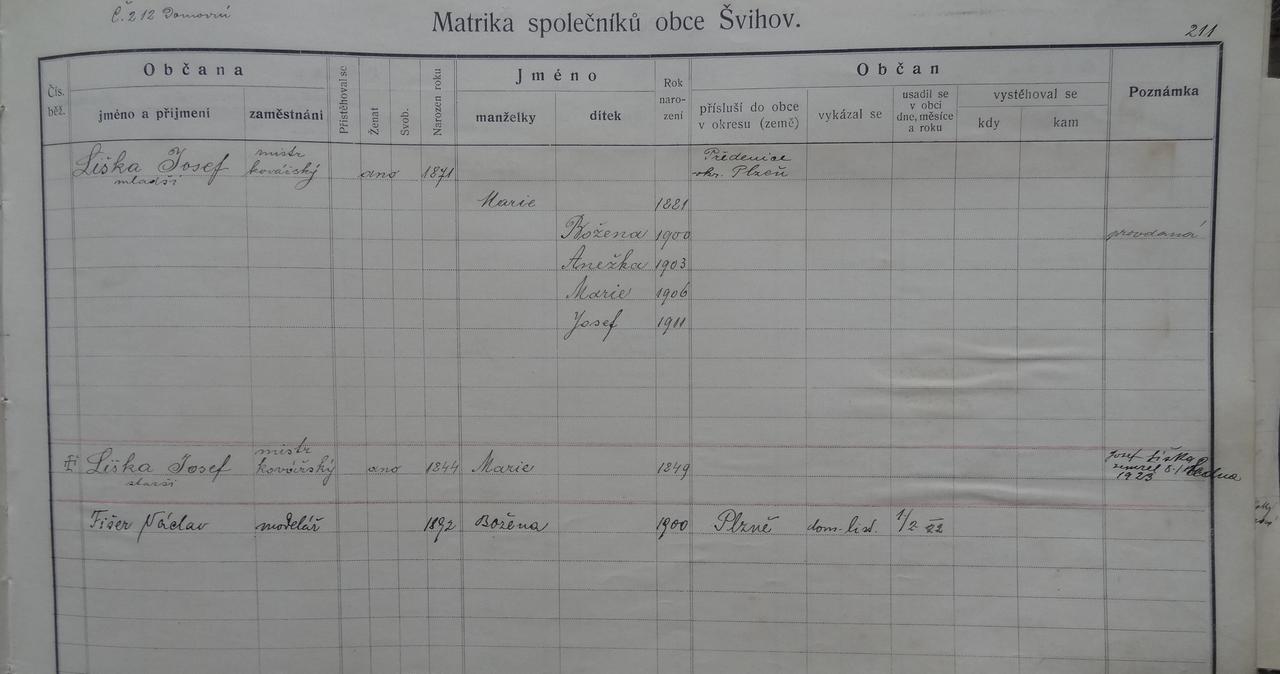 Č. 212 Domovní
Matrika společníků obce Švihov.
211
Čís. běž.
Občana
jméno a příjmení
zaměstnání
Přistěhoval se
Ženat
Svob.
Narozen roku
Jméno
manželky
dítek
Rok naro- zení
Občan
přísluší do obce v okresu (země)
vykázal se
usadil se v obci dne, měsíce a roku
vystěhoval se
kdy
kam
Poznámka
Liška Josef mladší mistr kovářský ano 1871 Předenice okr. Plzeň
Marie 1881
Božena 1900 provdaná
Anežka 1903
Marie 1906
Josef 1911
Liška Josef starší mistr kovářský ano 1844 Marie 1849 Josef Liška zemřel 1923
Fišer Václav modelář 1892 Božena 1900 Plzně dom. list. 1/2 22